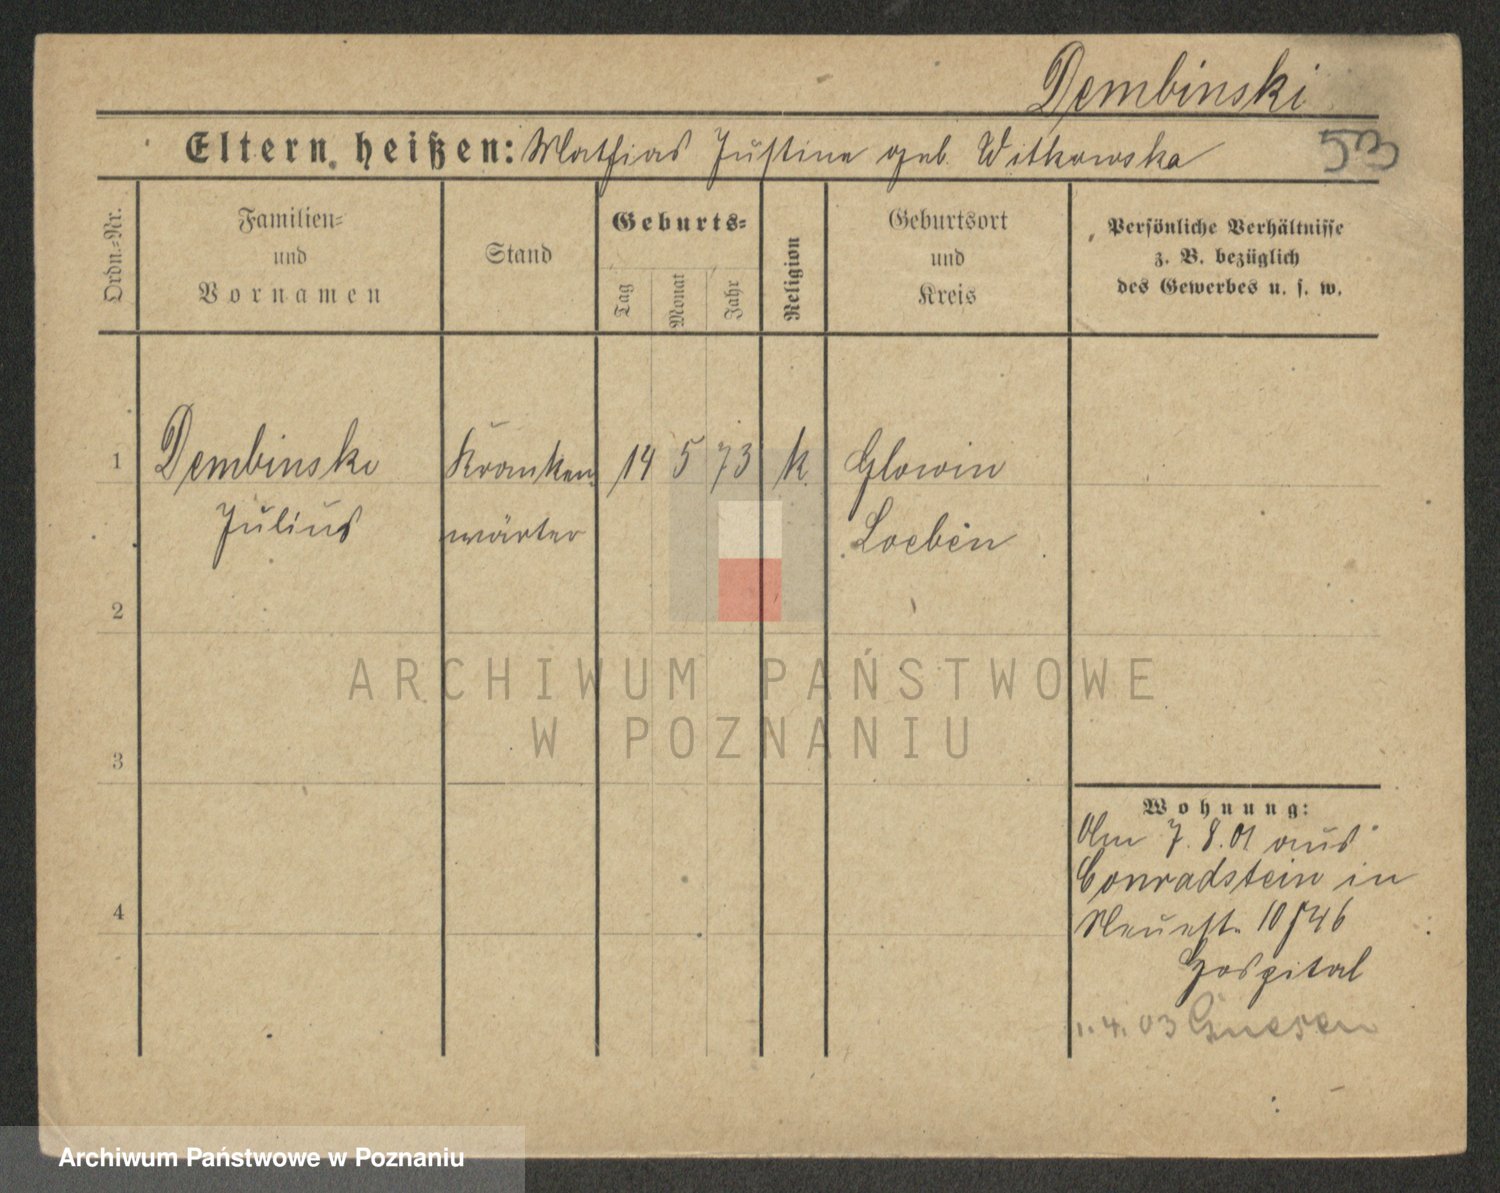 Dembinski
Eltern heißen: Mathias Justine geb. Witkowska
53
Ordn.=Nr.
Familien=
und
Vornamen
Stand
Geburts=
Tag
Monat
Jahr
Religion
Geburtsort
und
Kreis
Persönliche Verhältnisse
z. B. bezüglich
des Gewerbes u. s. w.
1 Dembinski Kranken 14 5 73 k. Glowin
Julius wärter Loebén
2
ARCHIWUM PAŃSTWOWE
W POZNANIU
3
Wohnung:
Am 7.8.01 aus
Conradstein in
4
Neuest. 10/46
Hospital
1.4.03 Gnesen
Archiwum Państwowe w Poznaniu